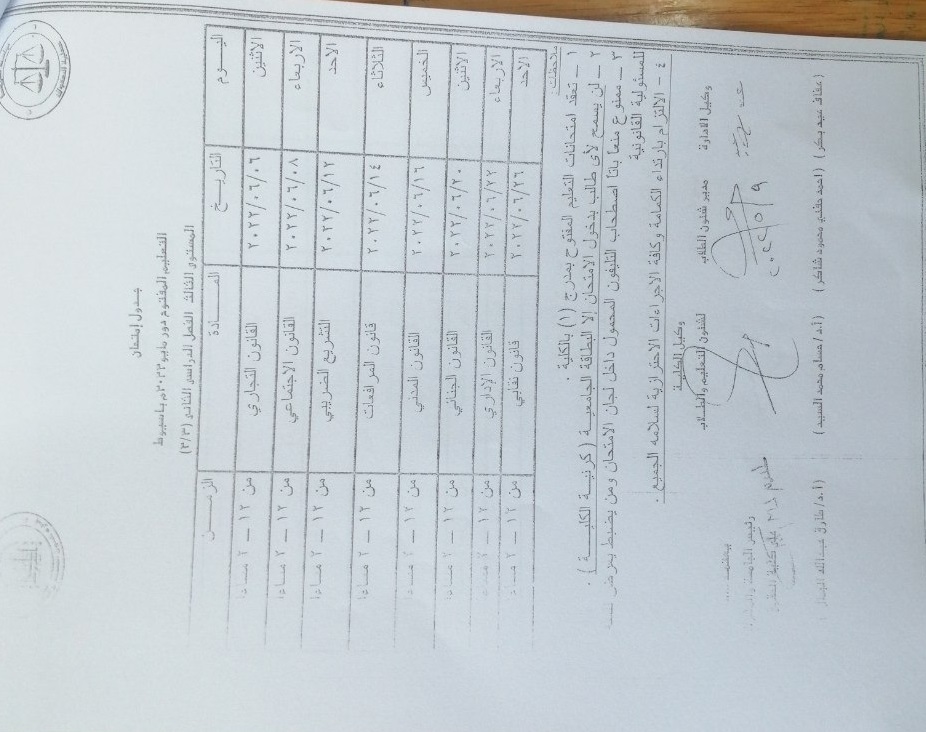 جدول إمتحان
التعليم المفتوح دور مايو ٢٠٢٢م بأسيوط
المستوى الثالث الفصل الدراسى الثانى (٣/٣)
اليــوم التاريــخ المــادة الزمــن
الاثنين ٢٠٢٢/٠٦/٠٦ القانون التجاري من ١٢ – ٢ مساءا
الاربعاء ٢٠٢٢/٠٦/٠٨ القانون الاجتماعي من ١٢ – ٢ مساءا
الاحد ٢٠٢٢/٠٦/١٢ التشريع الضريبي من ١٢ – ٢ مساءا
الثلاثاء ٢٠٢٢/٠٦/١٤ قانون المرافعات من ١٢ – ٢ مساءا
الخميس ٢٠٢٢/٠٦/١٦ القانون المدني من ١٢ – ٢ مساءا
الاثنين ٢٠٢٢/٠٦/٢٠ القانون الجنائي من ١٢ – ٢ مساءا
الاربعاء ٢٠٢٢/٠٦/٢٢ القانون الإداري من ١٢ – ٢
الاحد ٢٠٢٢/٠٦/٢٦ قانون نقابي من ١٢ – ٢
ملاحظات
١ – تعقد امتحانات التعليم المفتوح بمدرج (١) بالكلية .
٢ – لن يسمح لأى طالب بدخول الامتحان إلا البطاقة الجامعية ( كرنية الكليــة ) .
٣ – ممنوع منعاً باتاً اصطحاب التليفون المحمول داخل لجان الامتحان ومن يضبط يعرض نفسه
للمسئولية القانونية
٤ – الالتزام بارتداء الكمامة وكافة الاجراءات الاحترازية لسلامه الجميع .
وكيل الادارة مدير شئون الطلاب وكيل الكلية
لشئون التعليم والطلاب
يعتمد
٢٠٢٢/٥/٩
(عفاف عيد بكر ) (احمد حلمى محمود شاكر ) (أ.د/ عصام محمد السيد ) (أ.د/ طارق عبدالله